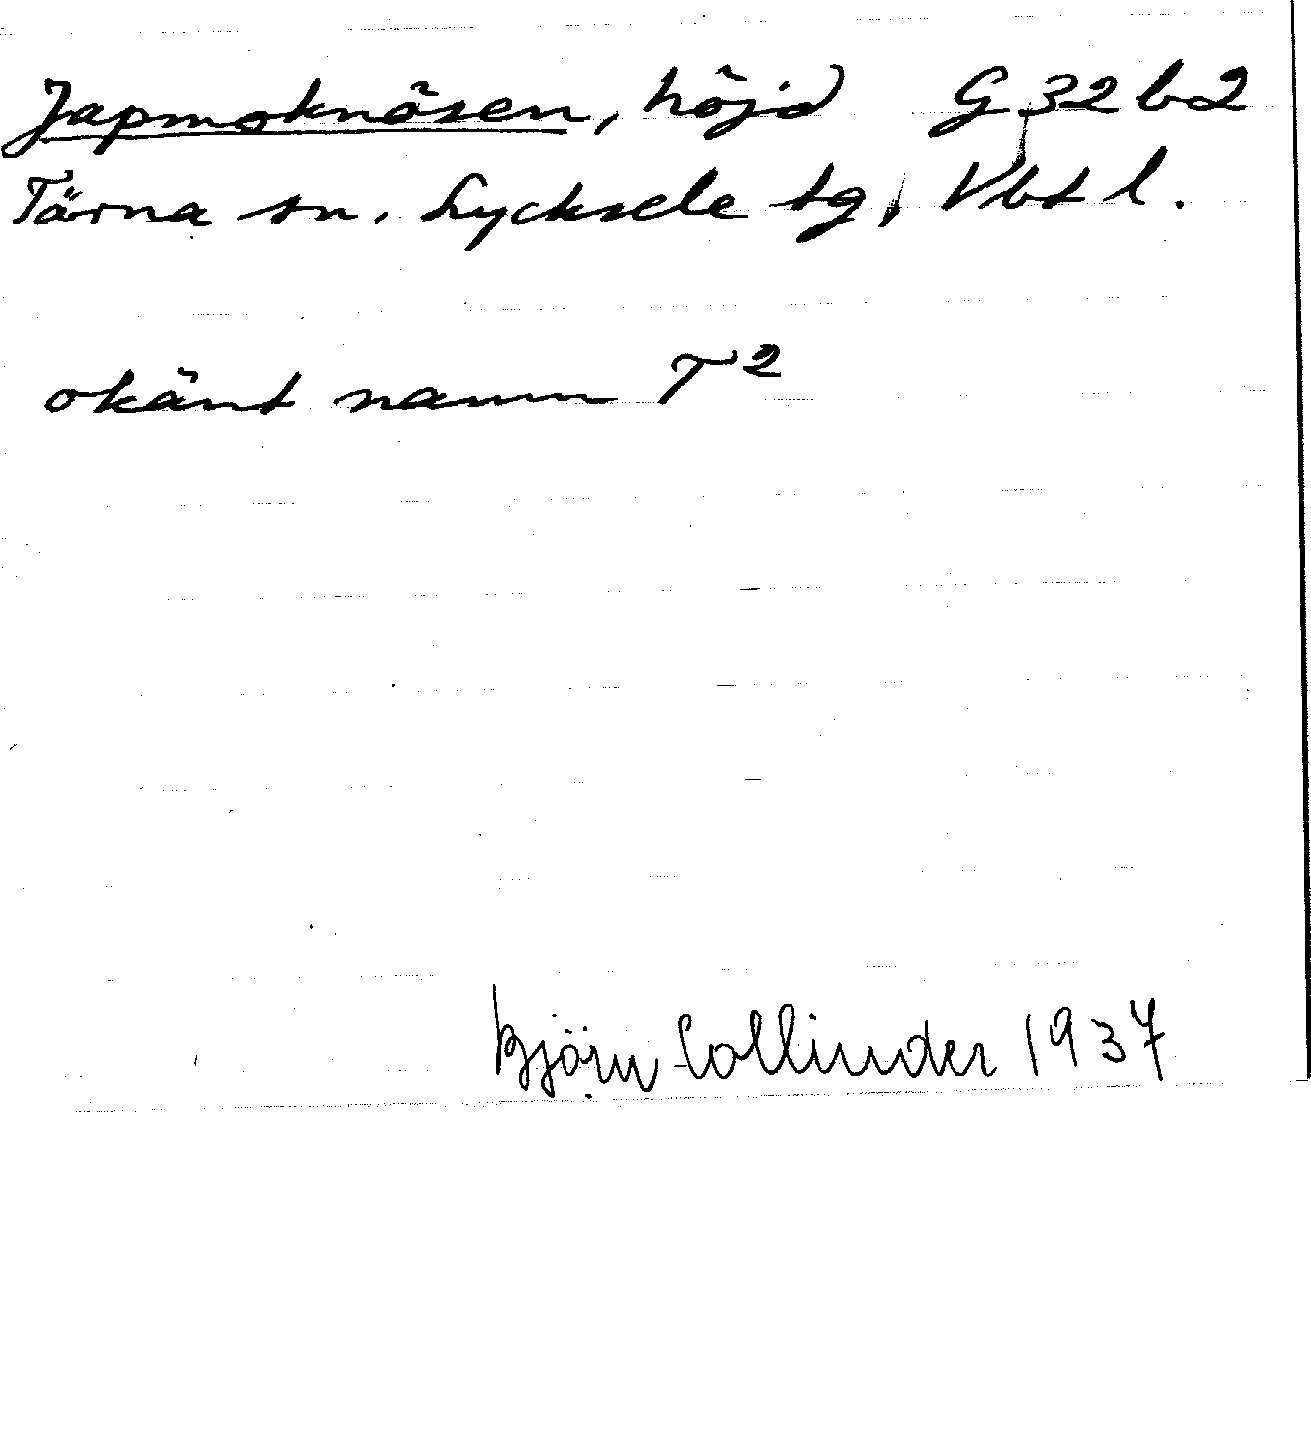 Japmoknösen, höjd G 32 b 2
Tärna sn. Lycksele tg, Vbt l.
okänt namn T²
Björn Collinder 1937